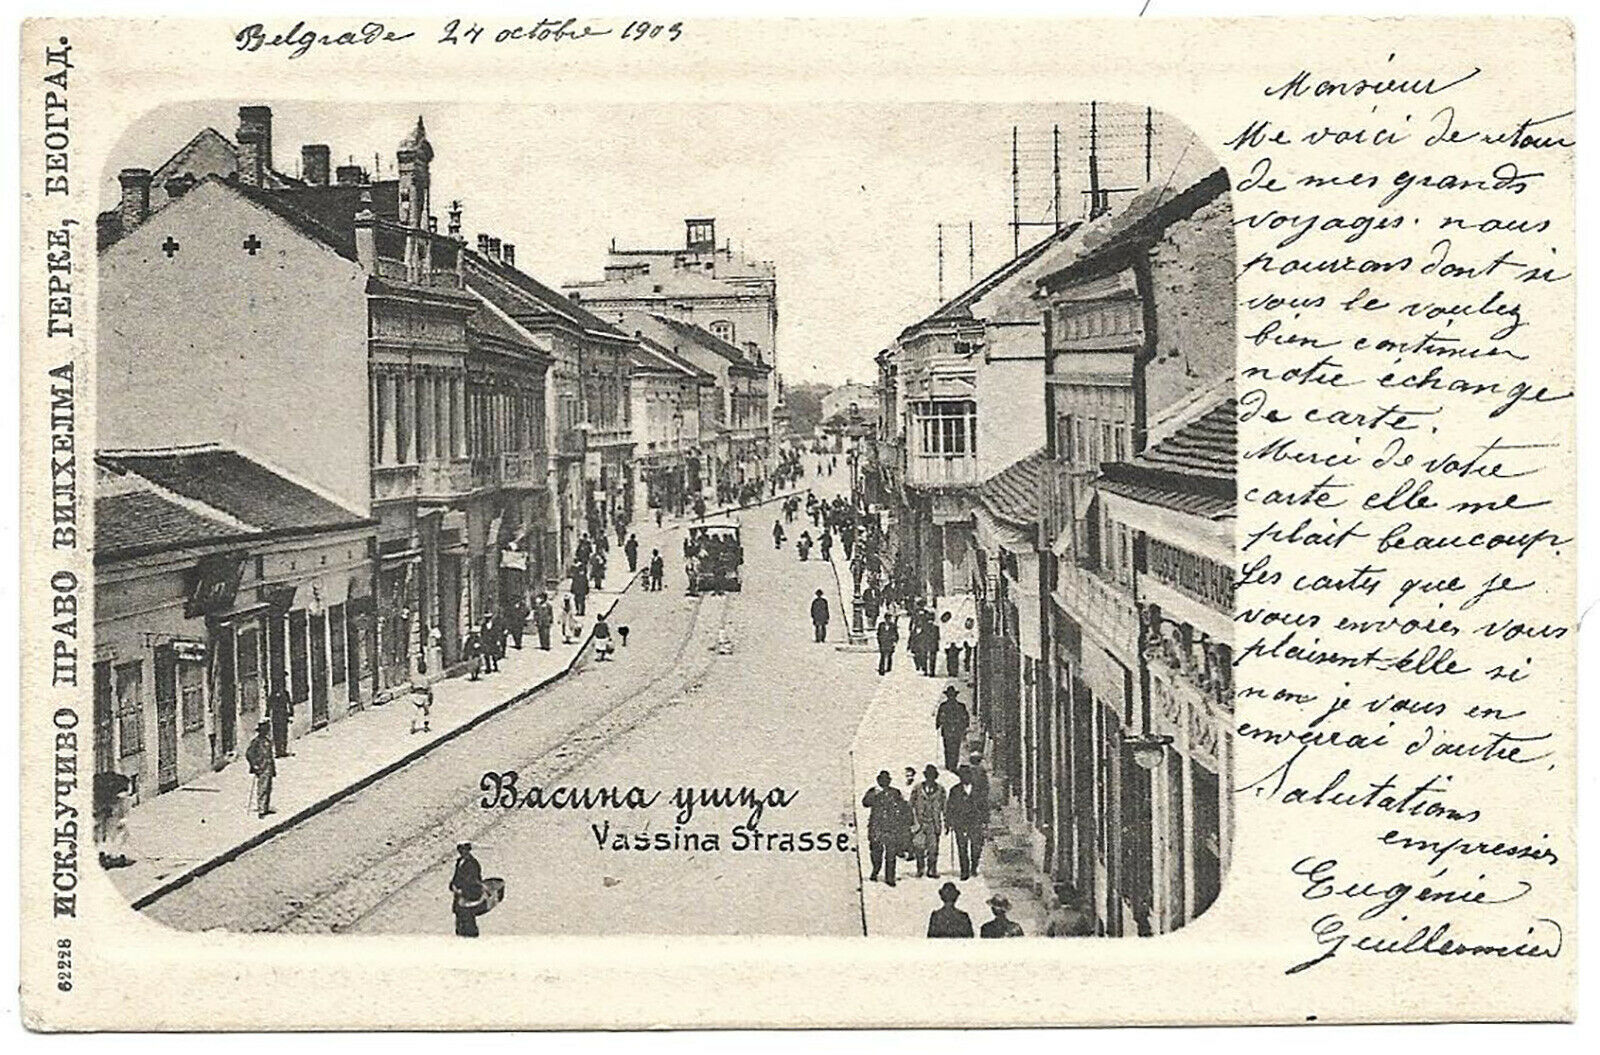 Belgrade 24 octobre 1903
Monsieur
Me voici de retour
de mes grands
voyages. nous
pourrons dont si
vous le voulez
bien continuer
notre échange
de carte.
Merci de votre
carte elle me
plait beaucoup.
Les cartes que je
vous envoies vous
plaisent-elle si
non je vous en
enverrai d'autre.
Salutations
empressées
Eugénie
Guillermin
Васина улица
Vassina Strasse.
62228 ИСКЉУЧИВО ПРАВО ВИЛХЕМА ГЕРКЕ, БЕОГРАД.